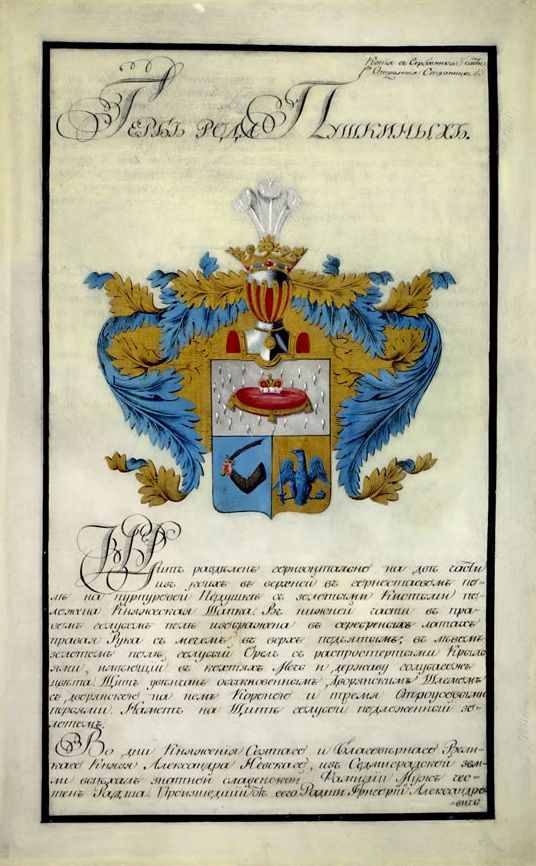 Копїя съ Гербовника 5 части
1го Отдѣленїя Страница 18
Гербъ рода Пушкиныхъ.
Щитъ раздѣленъ горизонтально на двѣ части
изъ коихъ въ верхней въ горностаевомъ по-
лѣ на пурпуровой Подушкѣ съ золотыми Кистьми по-
ложена Княжеская Шапка. Въ нижней части въ пра-
вомъ голубомъ полѣ изображена въ серебреныхъ латахъ
правая Рука съ мечемъ, въ верхъ поднятымъ; въ лѣвомъ
золотомъ полѣ, голубый Орелъ съ распростертыми Крыль-
ями, имѣющий въ когтяхъ Мечь и державу голубагожъ
цвѣта. Щитъ увѣнчанъ обыкновеннымъ Дворянскимъ Шлемомъ
съ дворянскою на немъ Короною и тремя Строусовыми
перьями. Наметъ на Щитѣ голубой подложенный зо-
лотомъ.
Во дни Княженїя Святаго и Благовѣрнаго Вели-
каго Князя Александра Невскаго, изъ Седмиградской зем-
ли выѣхалъ знатной славенской Фамилїи Мужъ чес-
тенъ Радша. Произшедшїй отъ сего Радши Григорїй Александро-
вичь